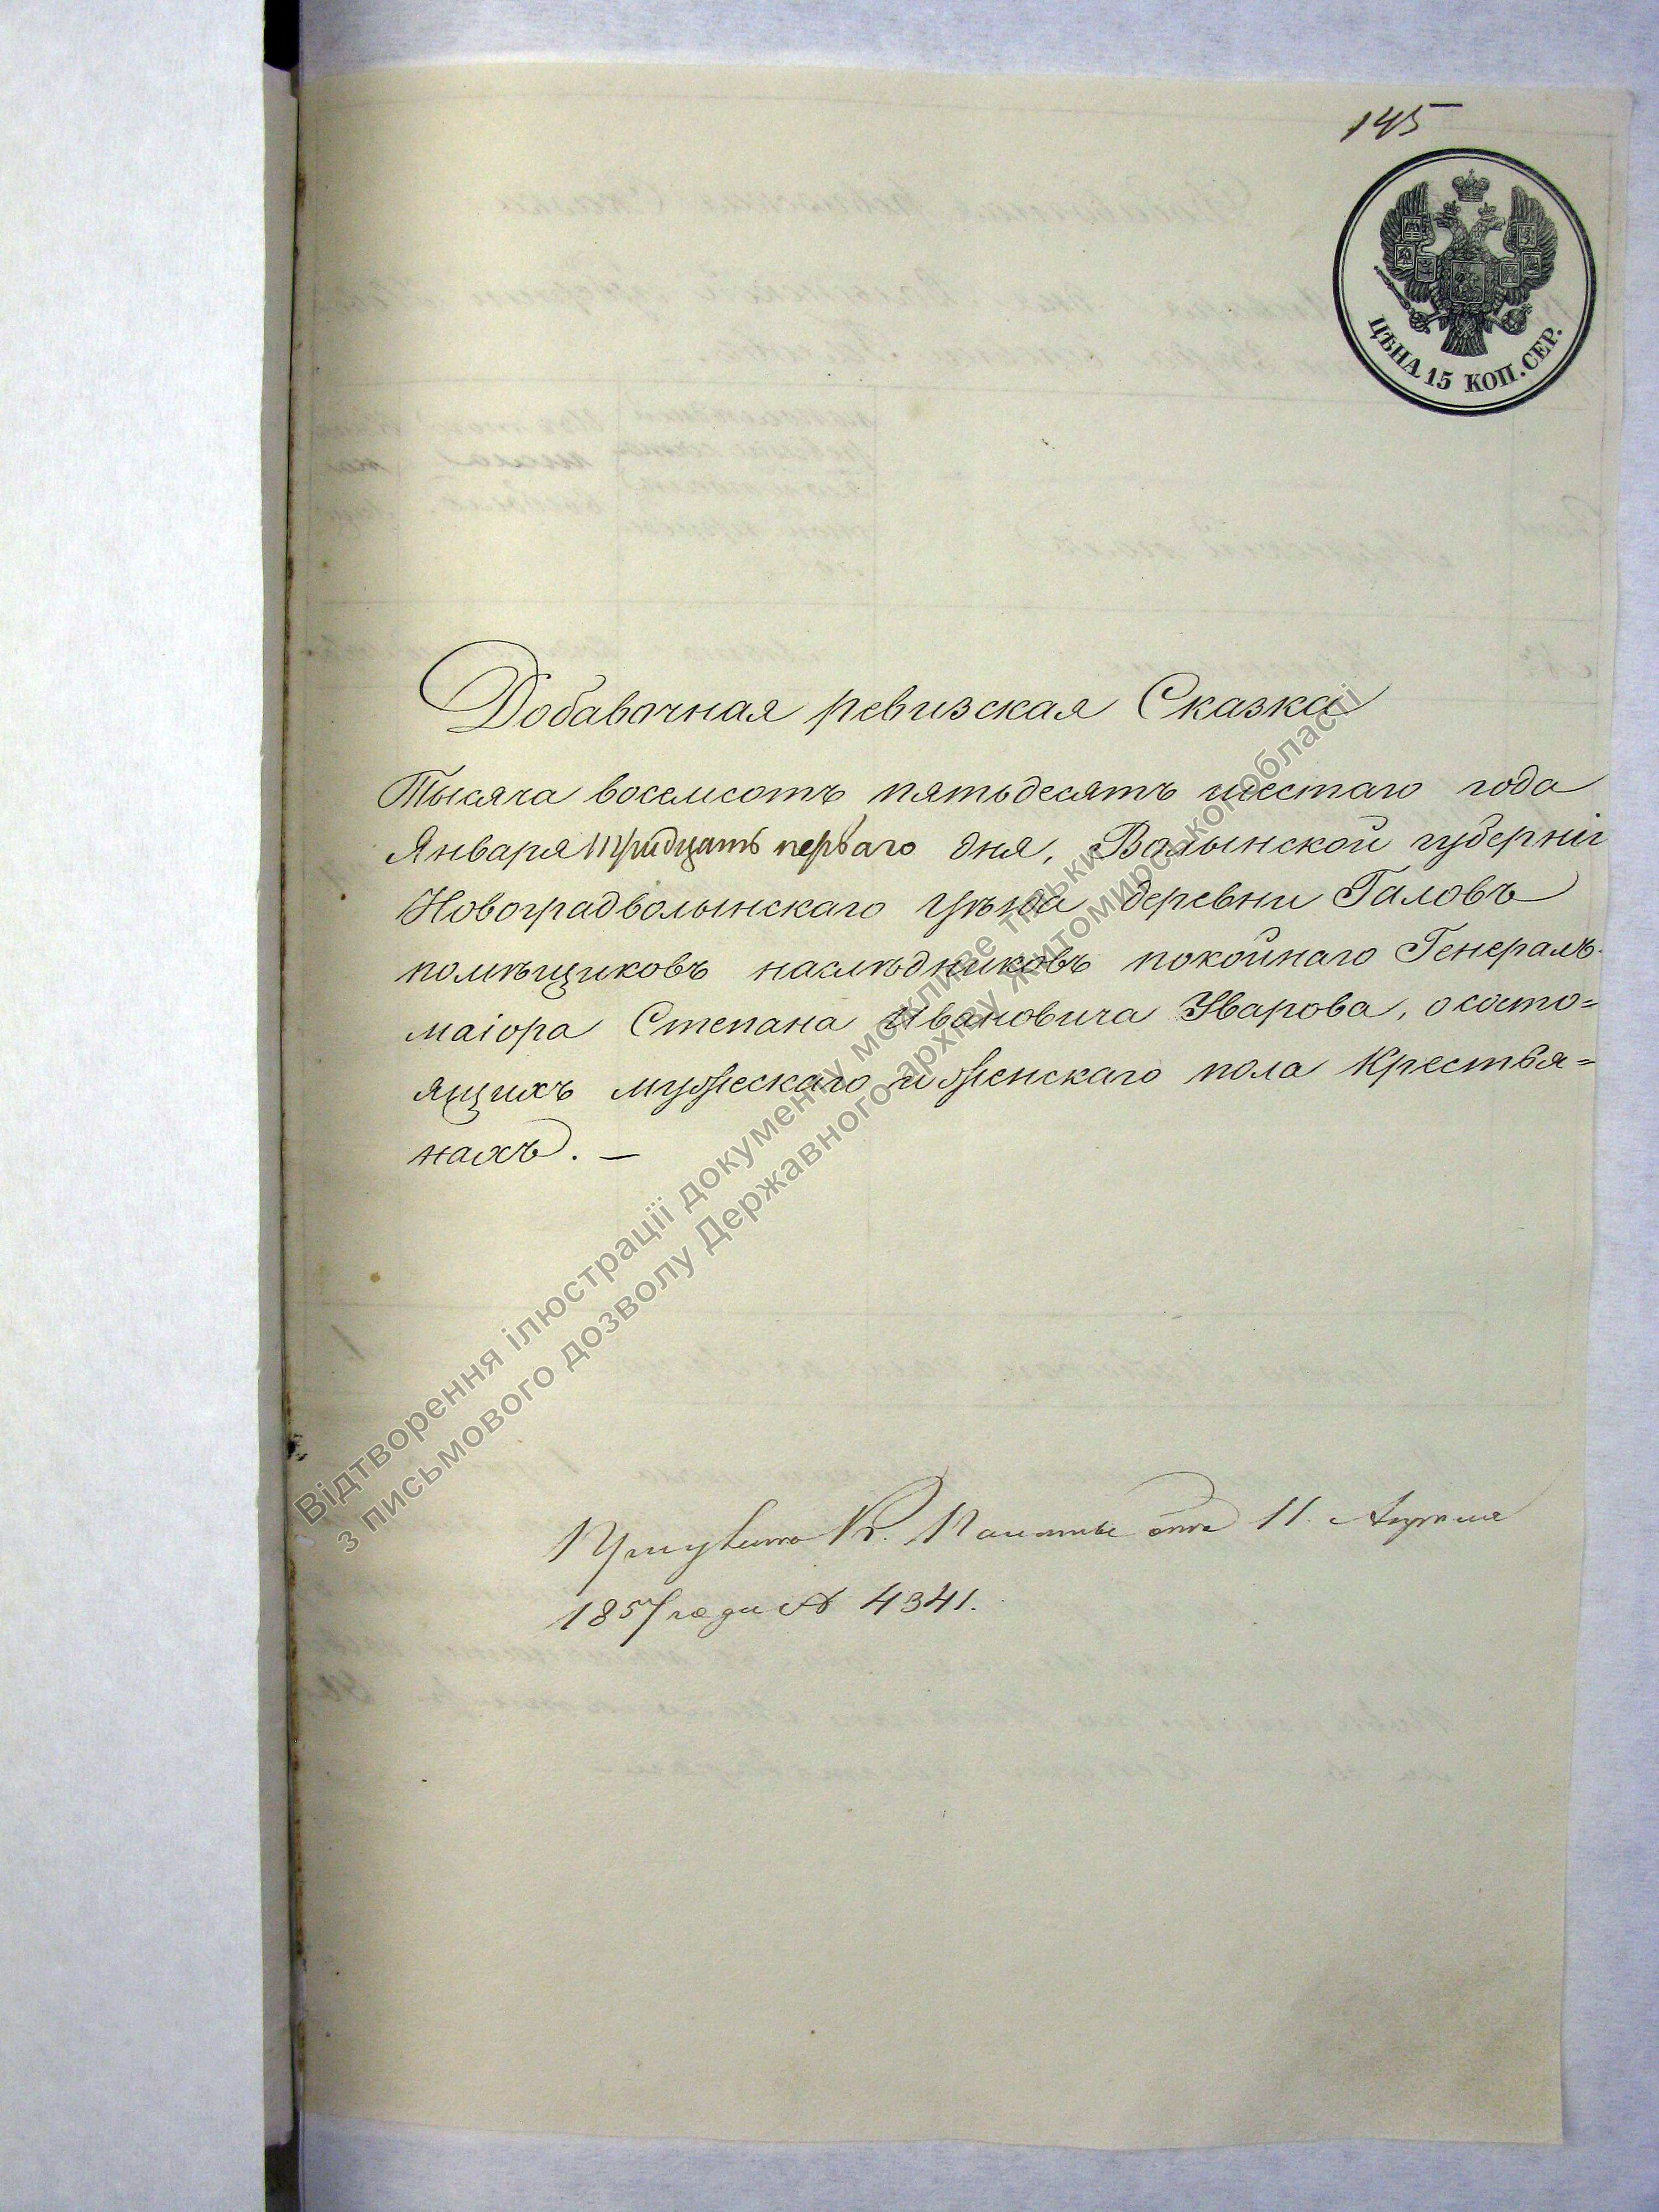 145
ЦѢНА 15 КОП. СЕР.
Добавочная ревизская Сказка
Тысяча восемсотъ пятьдесятъ шестаго года
Января тридцать перваго дня, Волынской губерніи
Новоградволынскаго Уѣзда деревни Галовъ
помѣщиковъ наслѣдниковъ покойнаго Генералъ-
маіора Степана Ивановича Уварова, о состо=
ящихъ мужескаго и женскаго пола Крестья=
нахъ. —
К. отъ 11. Апреля
1857 года № 4341.
Відтворення ілюстрації документу можливе тільки
з письмового дозволу Державного архіву Житомирської області